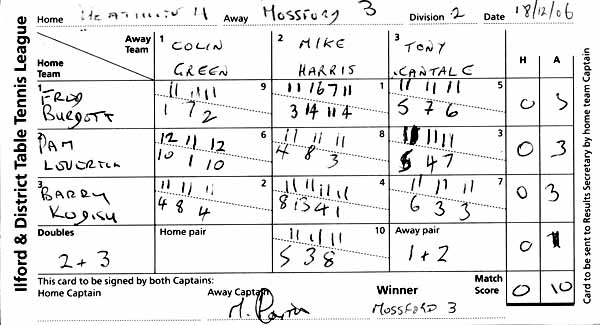 Ilford & District Table Tennis League
Home 11 Away MOSSFORD 3 Division 2 Date 18/12/06
Away Team 1 COLIN GREEN 2 MIKE HARRIS 3 TONY CANTALE H A
Home Team
1 FRED BURGOTT 9 11 11 11 1 11 16 7 11 5 11 11 11 0 3
1 7 2 3 14 11 4 5 7 6
2 PAM LOVERTON 6 12 11 12 8 11 11 11 3 11 11 11 0 3
10 1 10 4 8 3 5 4 7
3 BARRY KODISH 2 11 11 11 4 11 11 11 7 11 11 11 0 3
4 8 4 8 13 4 1 6 3 3
Doubles Home pair 10 Away pair
2 + 3 11 11 11 1 + 2 0 1
5 3 8
This card to be signed by both Captains:
Home Captain Away Captain Winner MOSSFORD 3 Match Score 0 10
Card to be sent to Results Secretary by home team Captain